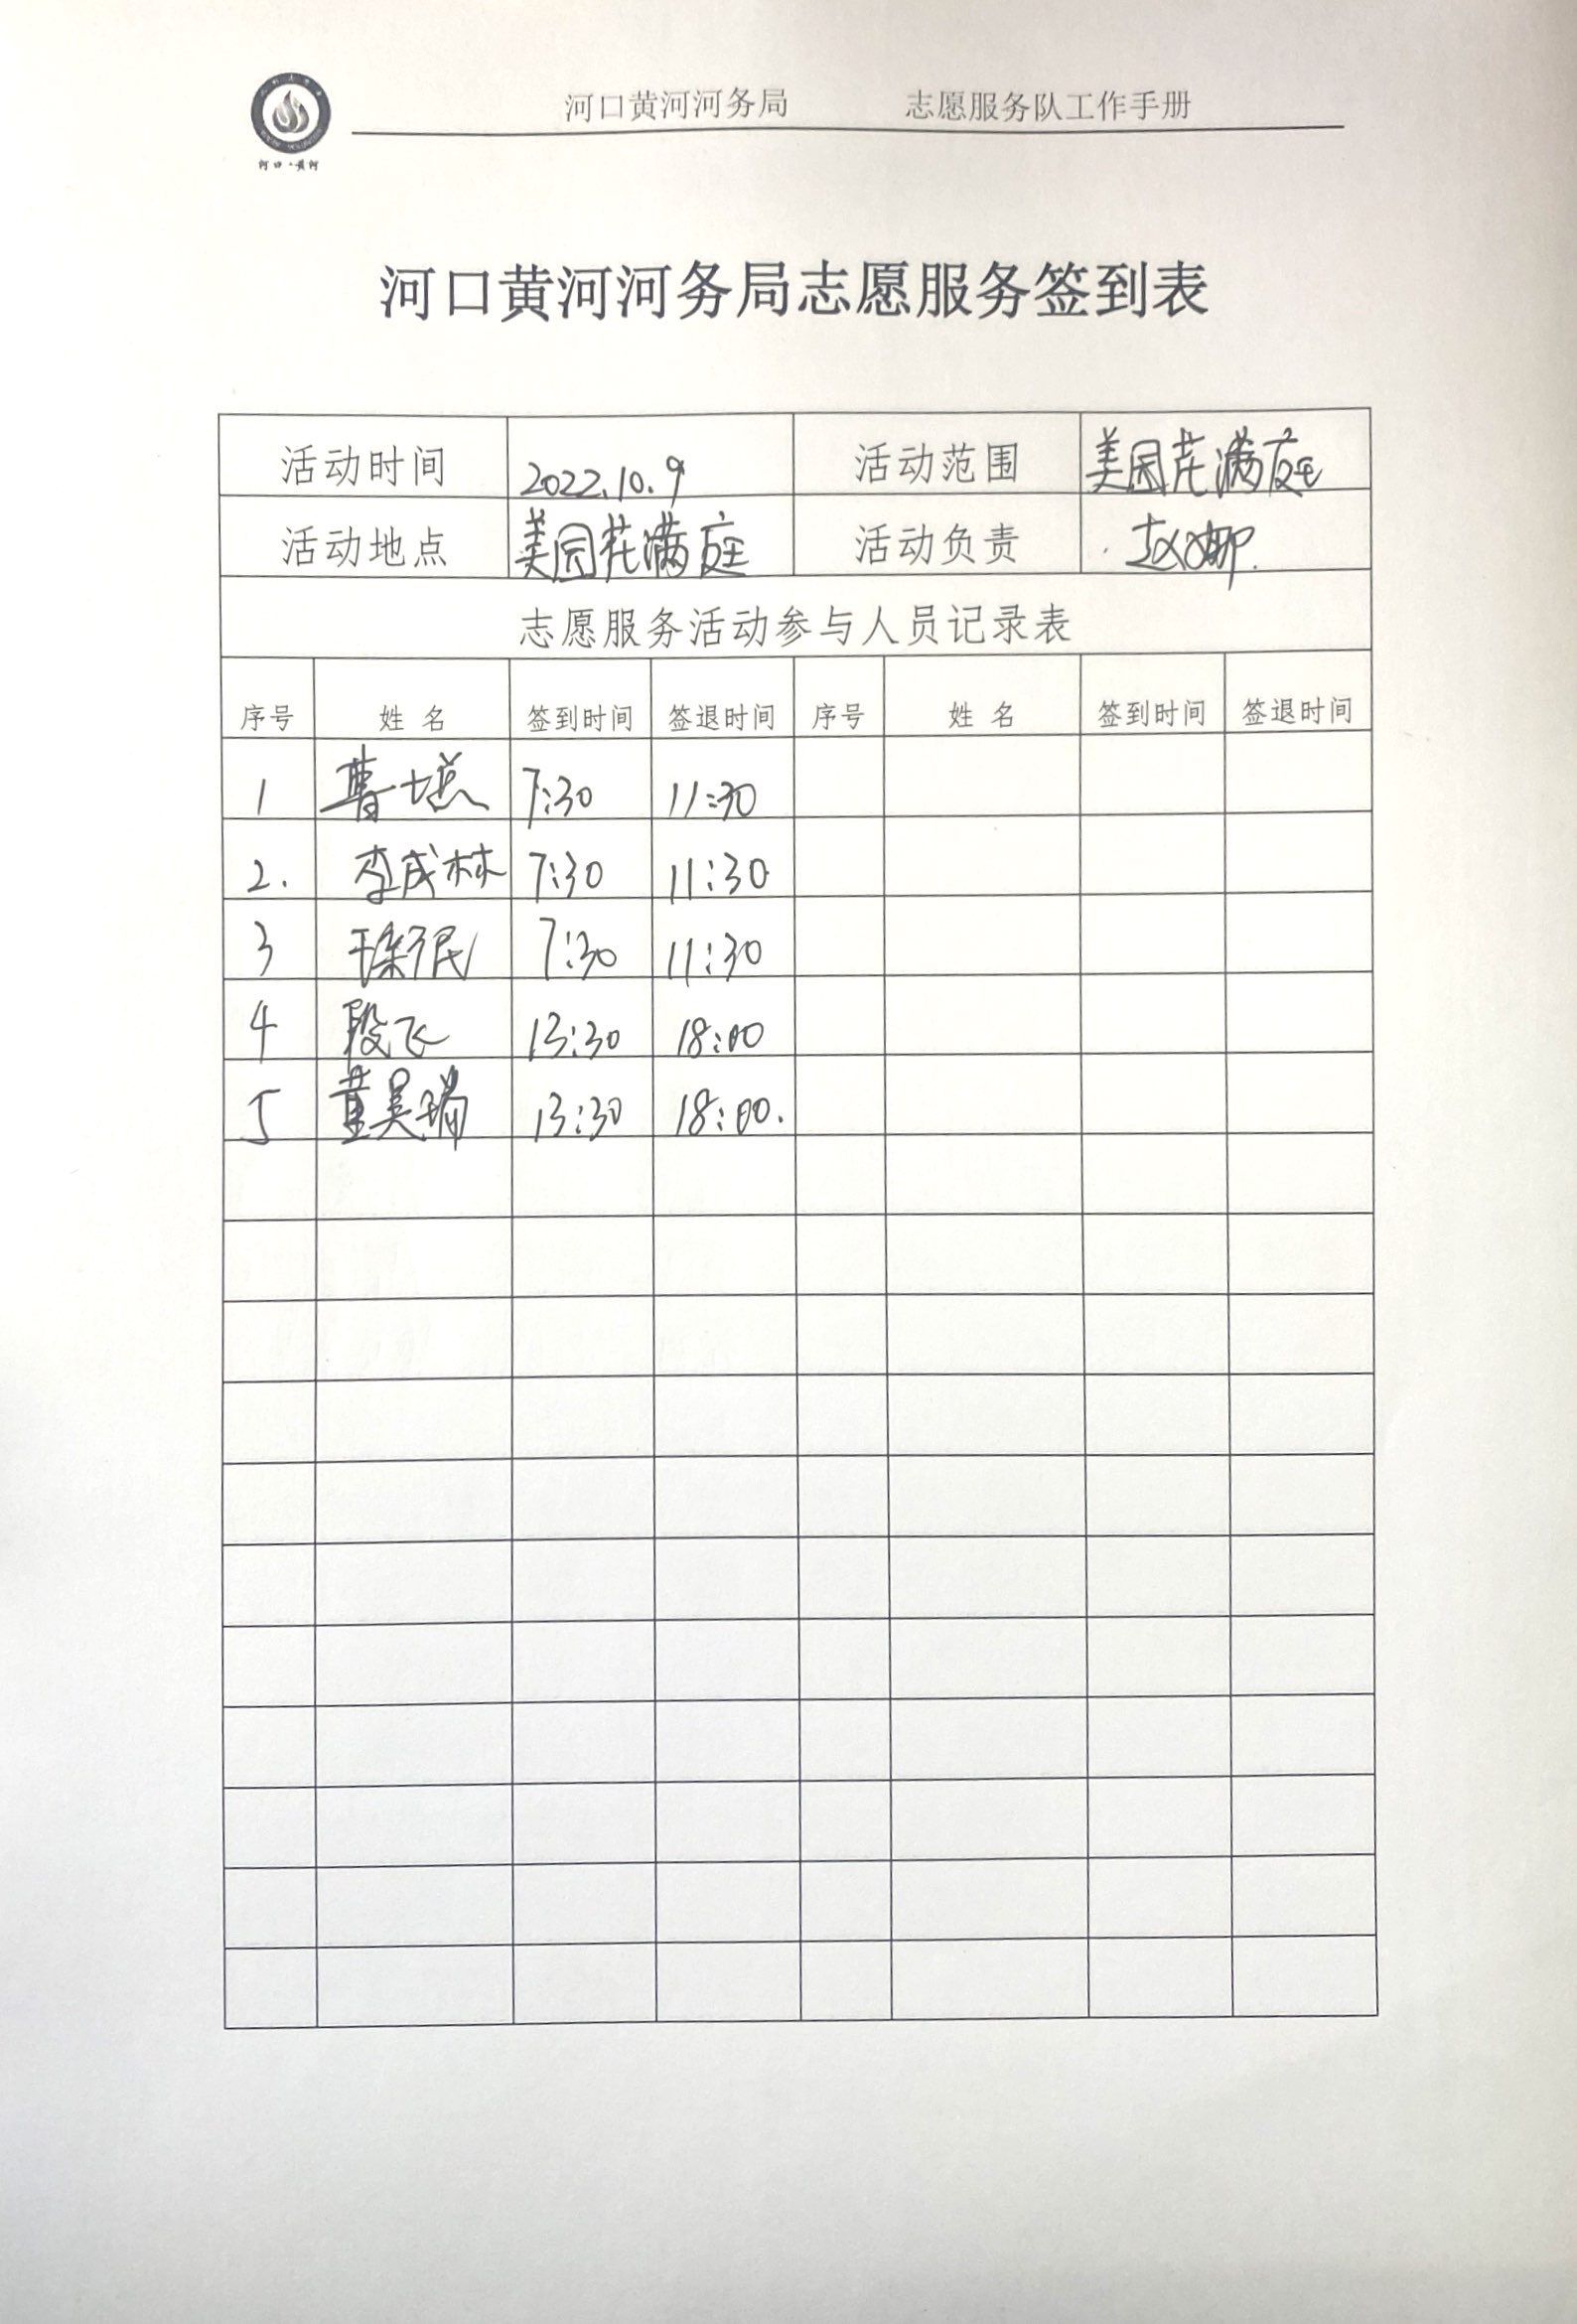 河口黄河河务局 志愿服务队工作手册
河口·黄河
河口黄河河务局志愿服务签到表
活动时间 2022.10.9 活动范围 美园花满庭
活动地点 美园花满庭 活动负责 赵娜
志愿服务活动参与人员记录表
序号 姓名 签到时间 签退时间 序号 姓名 签到时间 签退时间
1 7:30 11:30
2. 李成林 7:30 11:30
3 7:30 11:30
4 段飞 13:30 18:00
5 董昊瑞 13:30 18:00.